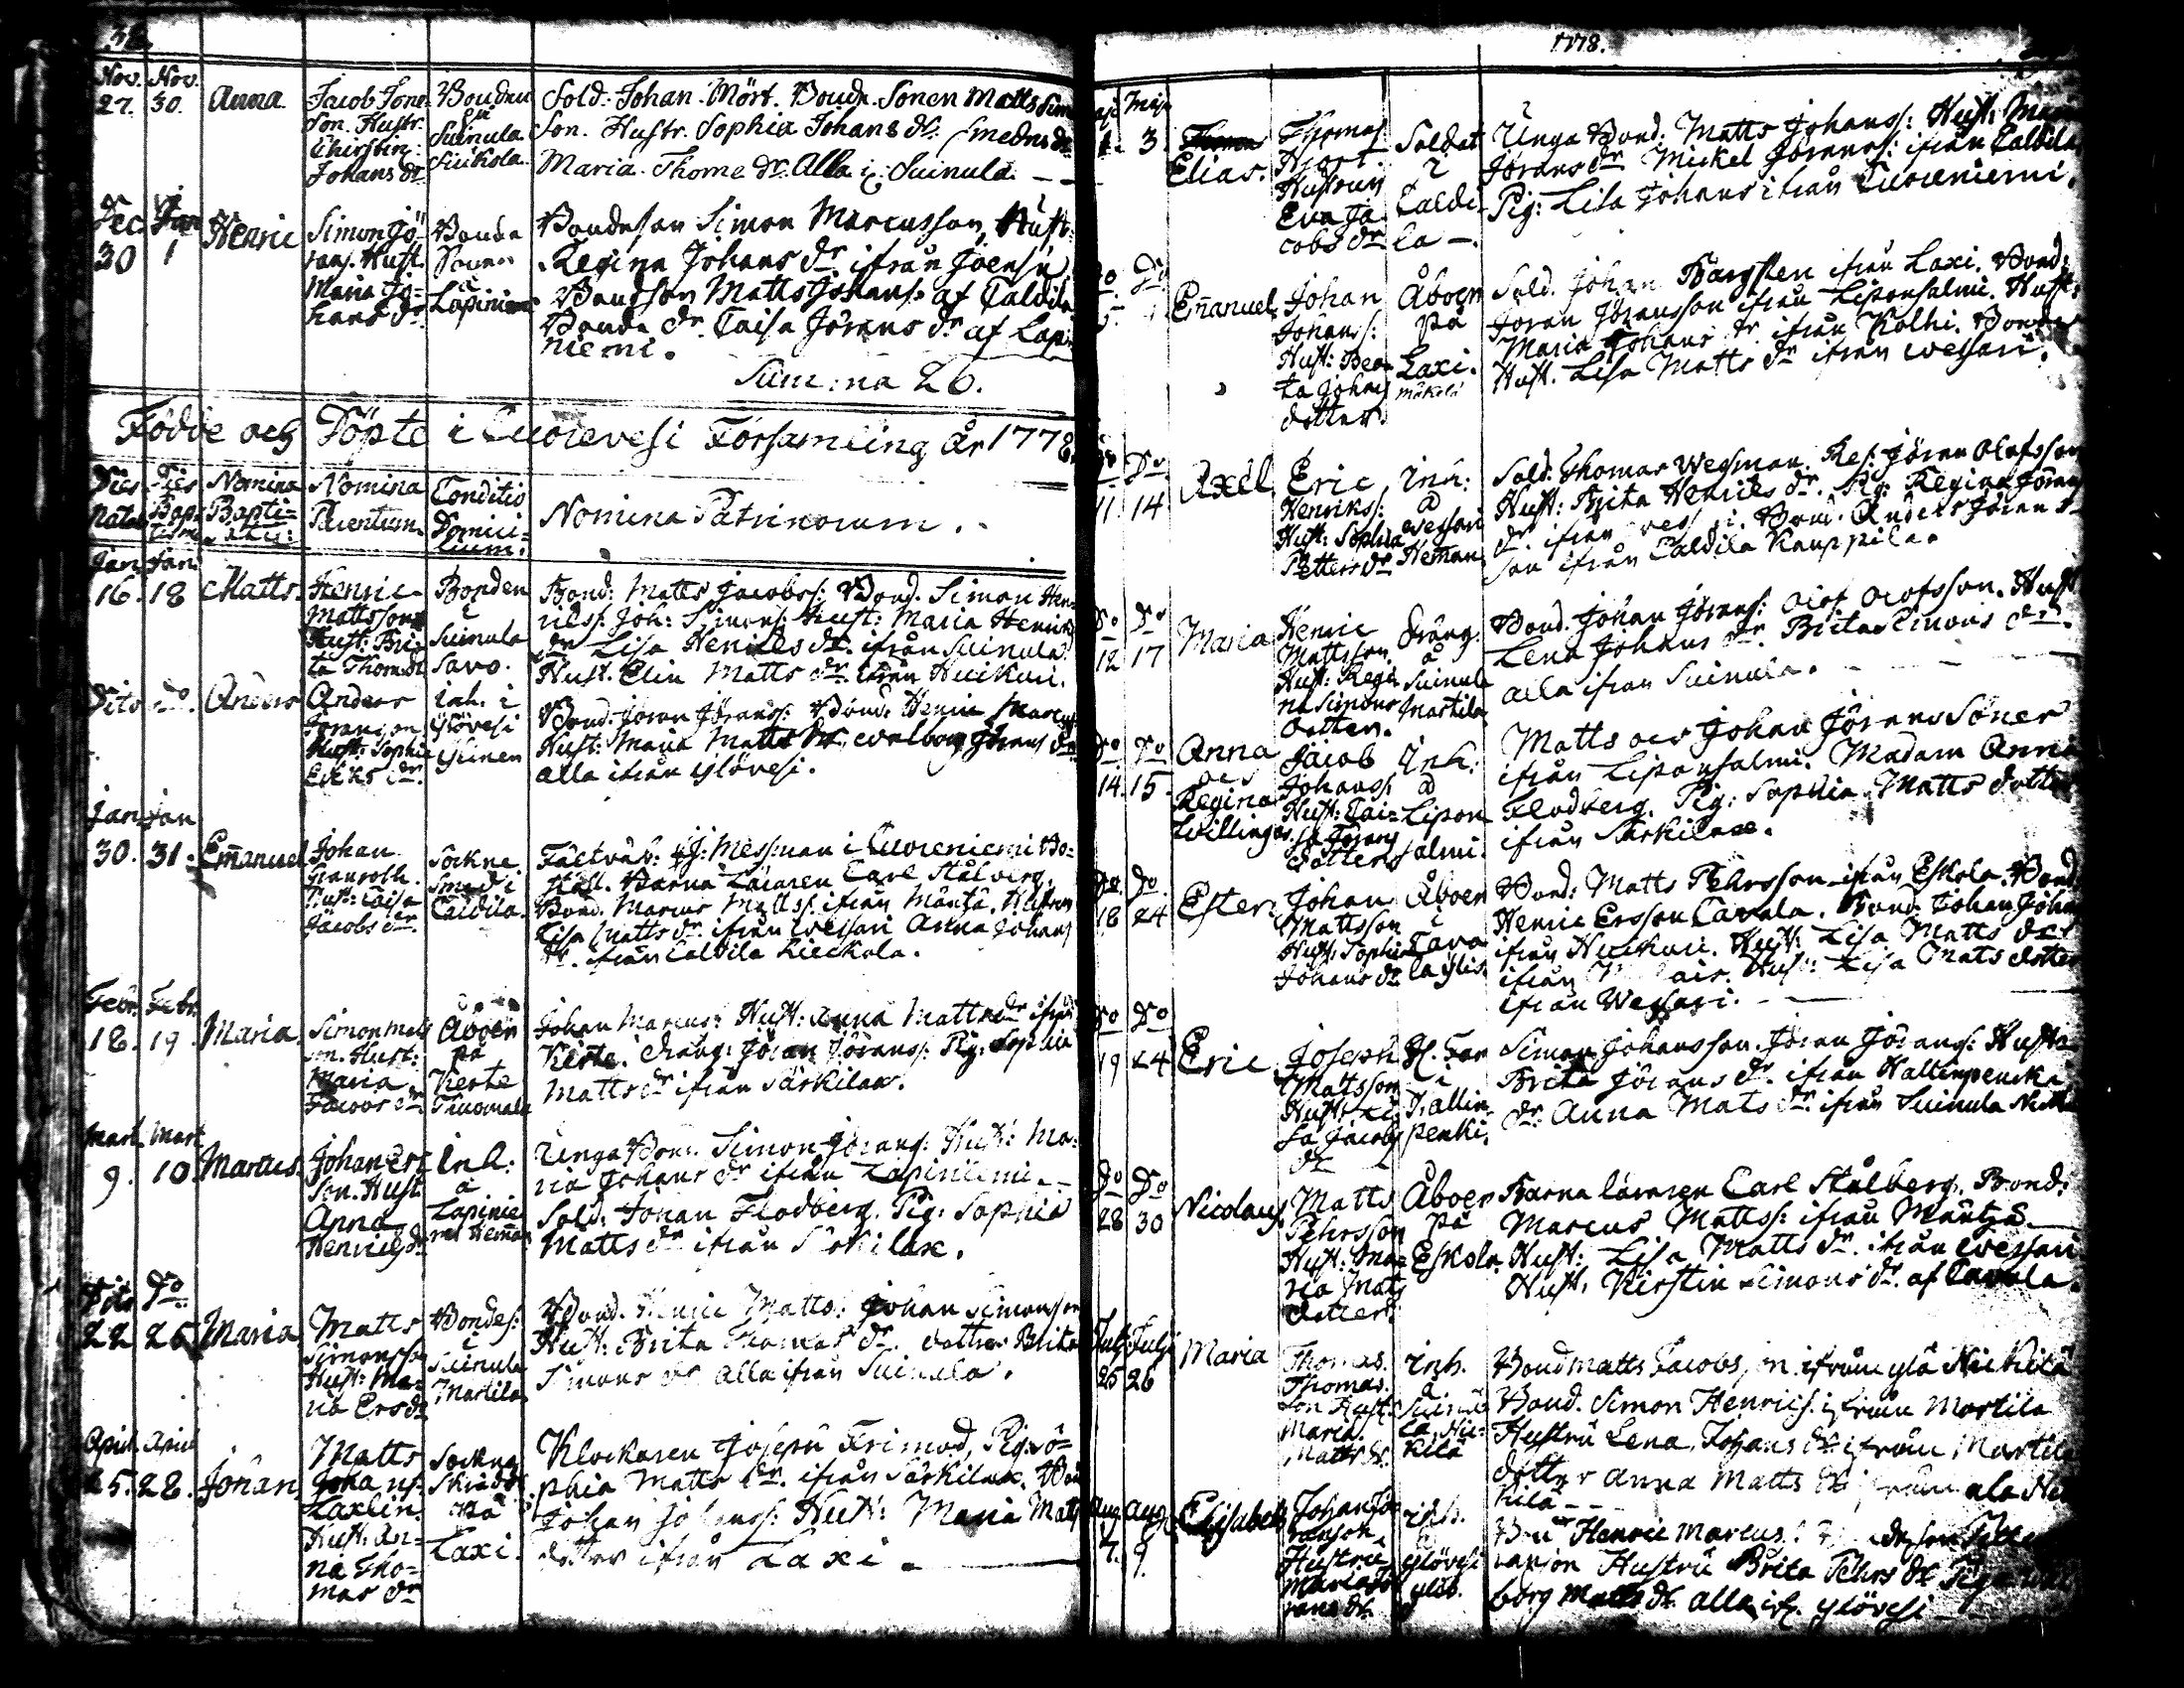 38.
Nov. Nov.
27. 30. Anna.
Jacob Jons
son. Hustr.
Chirstin
Johans dr
Bonden
på
Suinula
Suikola.
Sold. Johan Mört. Bonde Sonen Matts Sim
Son. Hustr. Sophia Johans dr: Smedens dr
Maria Thome dr. Alla i Suinula.
Dec. Jan
30 1 Henric
Simon Jö-
rans. Hust.
Maria Jo-
hans dr.
Bonde
Sonen
å
Lapiniemi
Bondeson Simon Marcusson, Hust:
Regina Johans dr. ifrån Joensu
Bondson Matts Johans: af Caldila
Bonde dr. Caisa Jörans dr af Lapi
niemi.
Summa 26.
Födde och Döpte i Cuorevesi Församling År 1778.
Dies
Natal.
Dies
Bap-
tism
Nomina
Bapti-
Nomina
Parentum.
Conditio
Domici-
lium.
Nomina Patrinorum.
Jan. Jan.
16. 18 Matts.
Henric
Mattsson
Hust: Bri-
ta Thom. dr
Bonden
i
Suinula
Savo.
Bond: Matts Jacobss: Bond. Simon Hen-
rikss. Joh: Simons: Hust: Maria Henriks
dr Lisa Henriks dr. ifrån Suinula
Hust. Elin Matts dr. ifrån Huikuri.
Dito do. Anders
Anders
Joransson
Hust: Sophia
Ericks dr.
Inh. i
Ylövesi
Ylinen
Bond. Joran Jöranss: Bond. Henric Marcus
Hust: Maria Matts dr, Walborg Jörans dr
alla ifrån Ylövesi.
Jan. Jan
30. 31. Emanuel
Johan
Hust: Caisa
Jacobs dr.
Sockne
Smed i
Caldila.
Fältväb: J: Messman i Cuoreniemi Bo-
ställ. Barna Läraren Carl Stålberg.
Bond. Marcus Mattss: ifrån Mäntzä. Hustrun
Lisa Matts dr. ifrån Wessari Anna Johans
dr. ifrån Caldila Lieckola.
Febr. Febr.
18. 19. Maria.
Simon Mats
son. Hust:
Maria
Jacobs dr
Åboen
på
Kerte
Tuomala
Johan Marcus: Hust: Anna Matts dr ifrån
Kerte. Dräng: Jöran Jöranss: Pig: Sophia
Matts dr ifrån Särkilax.
Mart. Mart
9. 10. Marcus.
Johan Ers
Son. Hust
Anna
Henrichs dr
Inh:
å
Lapinie
mi Heman
Unga Bond. Simon Jörans: Hust: Ma-
ria Johans dr ifrån Lapiniemi.
Sold: Johan Flodberg. Pig: Sophia
Matts dr ifrån Särkilax.
Dito Do
22 26 Maria
Matts
Simonsson
Hust: Ma-
ria Ers dr
Bondes:
i
Suinula
Martila
Bond. Henric Matts: Johan Simonsson
Hust: Brita Thomas dr. dotter Brita
Simons dr alla ifrån Suinula.
April. April
25. 28. Johan
Matts
Johans:
Laxlin.
Hust: An-
na Tho-
mas dr
Sockne
Skräddr
på
Laxi.
Klockaren Joseph Frimod, Pig: So-
phia Matts dr. ifrån Särkilax. Bon
Johan Johanss: Hust: Maria Mats
dotter ifrån Laxi.
1778.
Maji
1. 3.
Elias.
Thomas
Hjort.
Hustrun
Eva Ja
cobs dr
Soldat
i
Caldi-
la.
Unga Bond. Matts Johanss: Hust: Mar
Jörans dr Mickel Jöranss: ifrån Caldila
Pig: Lisa Johans ifrån Cuoreniemi.
Do. Do
5. Emanuel
Johan
Johans:
Hust: Bea-
ta Johans
dotter.
Åboen
på
Laxi.
Mäkelä
Sold. Johan Bargsten ifrån Laxi. Bond:
Joran Jöransson ifrån Liponsalmi. Hust:
Maria Johans dr. ifrån Kolhi. Bonde
Hust. Lisa Matts dr ifrån Wessari.
Do
11. 14 Axel
Eric
Henrikss:
Hust: Sophia
Petters dr
Inh:
å
Wessari
Heman
Sold: Thomas Wegman. Res: Jöran Olofsson
Hust: Brita Henriks dr. Pig: Regina Joran
dr. ifrån Wessari. Bond. Anders Jöran s-
son ifrån Caldila Kauppila.
Do Do
12 17 Maria
Henric
Mattsson
Hust: Regi
na Simons
dotter.
Dräng
å
Suinula
Martila
Bond. Johan Jörans: Olof Olofsson. Hust
Lena Johans dr Brita Simons dr
alla ifrån Suinula.
Do Do
14. 15. Anna
och
Regina
Tvillingar.
Jacob
Johanss:
Hust: Cai-
sa Jörans
dotter
Inh:
å
Lipon
salmi.
Matts och Johan Jörans Söner
ifrån Liponsalmi. Madam Anna
Flodberg. Pig: Sophia Matts dotter
ifrån Särkilax.
Do. Do.
18 24 Ester.
Johan
Mattsson
Hust: Sophia
Johans dr
Åboen
i
Tava
la Ylis.
Bond: Matts Pehrsson ifrån Eskola. Bond
Henric Ersson Tavala. Bond. Johan Johan
ifrån Huikuri. Hust: Lisa Matts dr
ifrån Hust: Lisa Mats dotter
ifrån Wessari.
Do Do
19 24 Eric
Joseph
Mattsson
Hust: Li
sa Jacobs
dr
i
Hallin
penki.
Simon Johansson. Jöran Jörans: Hustr
Brita Jörans dr. ifrån Hallinpencka
dr: Anna Mats dr. ifrån Suinula
Do Do
28 30 Nicolaus.
Matts
Pehrsson
Hust: Ma-
ria Mats
dotter
Åboen
på
Eskola.
Barna läraren Carl Stålberg. Bond:
Marcus Mattss: ifrån Mäntzä.
Hust: Lisa Matts dr. ifrån Wessari
Hust: Kirstin Simons dr. af Tavala.
Julj Julj
25 26 Maria
Thomas.
Thomas.
son Hust:
Maria
Matts dr.
Inh.
å
Suinu
la, Nic
kilä
Bond Matts Jacobsson ifrån Ylä Nickilä
Bond. Simon Henrics. ifrån Martila
Hustru Lena Johans dr ifrån Martila
dotter Anna Matts dr ifrån ala Nic
kilä
Aug. Aug.
7. 9. Elisabeth
Johan Jö
ranson
Hustru
Maria Jö
rans dr.
Inh.
Ylövesi
Henric Marcus.
ranson Hustru Brita Pehrs dr Piga
borg Matts dr. alla if. Ylövesi